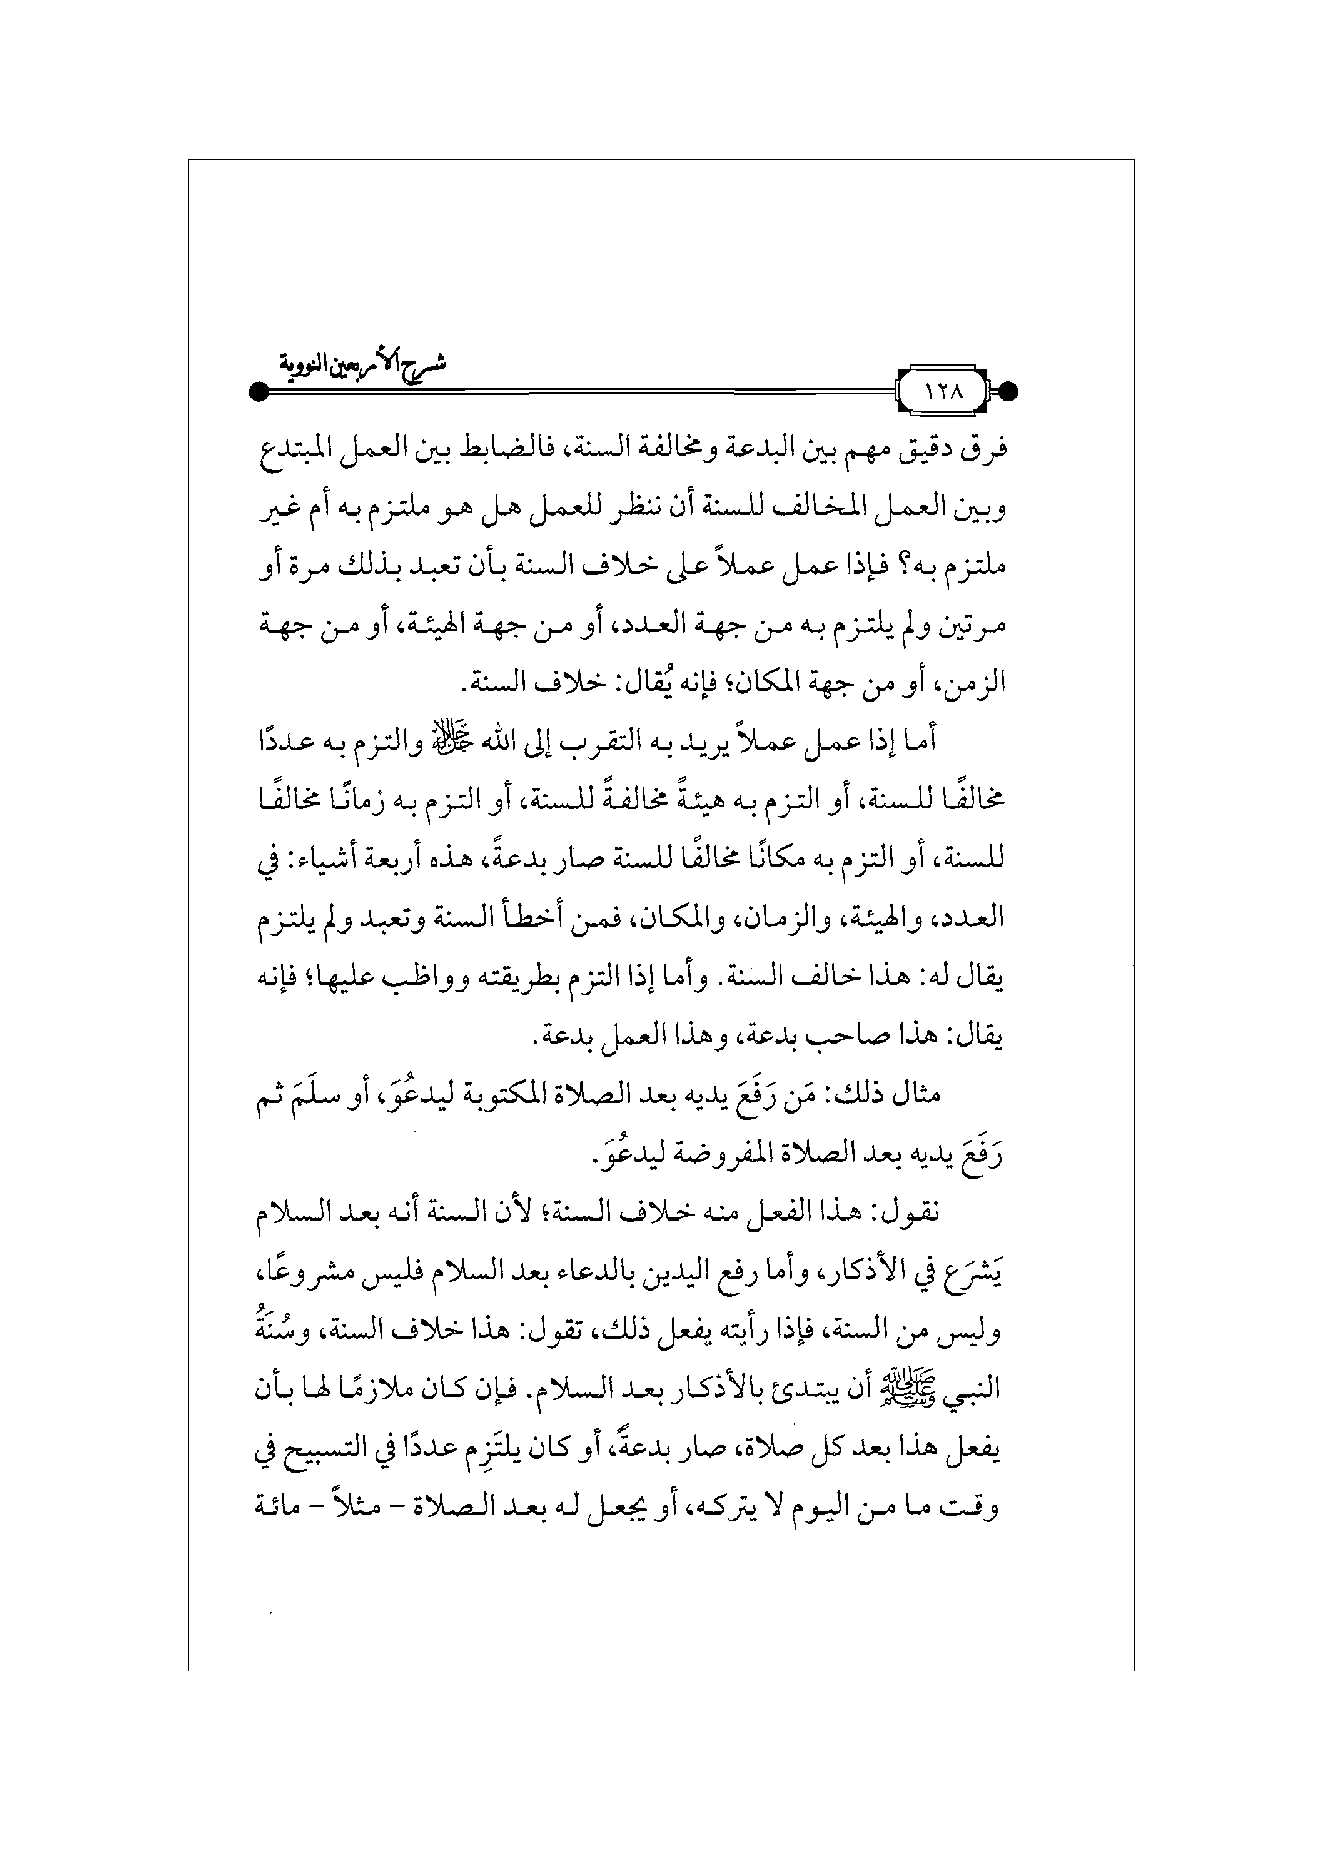 شرح الأربعين النووية
١٢٨
فرق دقيق مهم بين البدعة ومخالفة السنة، فالضابط بين العمل المبتدع
وبين العمل المخالف للسنة أن ننظر للعمل هل هو ملتزم به أم غير
ملتزم به؟ فإذا عمل عملاً على خلاف السنة بأن تعبد بذلك مرة أو
مرتين ولم يلتزم به من جهة العدد، أو من جهة الهيئة، أو من جهة
الزمن، أو من جهة المكان؛ فإنه يُقال: خلاف السنة.
أما إذا عمل عملاً يريد به التقرب إلى الله ﷻ والتزم به عددًا
مخالفًا للسنة، أو التزم به هيئةً مخالفةً للسنة، أو التزم به زمانًا مخالفًا
للسنة، أو التزم به مكانًا مخالفًا للسنة صار بدعةً، هذه أربعة أشياء: في
العدد، والهيئة، والزمان، والمكان، فمن أخطأ السنة وتعبد ولم يلتزم
يقال له: هذا خالف السنة. وأما إذا التزم بطريقته وواظب عليها؛ فإنه
يقال: هذا صاحب بدعة، وهذا العمل بدعة.
مثال ذلك: مَن رَفَعَ يديه بعد الصلاة المكتوبة ليدعُوَ، أو سلَّمَ ثم
رَفَعَ يديه بعد الصلاة المفروضة ليدعُوَ.
نقول: هذا الفعل منه خلاف السنة؛ لأن السنة أنه بعد السلام
يَشرَع في الأذكار، وأما رفع اليدين بالدعاء بعد السلام فليس مشروعًا،
وليس من السنة، فإذا رأيته يفعل ذلك، تقول: هذا خلاف السنة، وسُنَةُ
النبي ﷺ أن يبتدئ بالأذكار بعد السلام. فإن كان ملازمًا لها بأن
يفعل هذا بعد كل صلاة، صار بدعةً، أو كان يلتَزِم عددًا في التسبيح في
وقت ما من اليوم لا يتركه، أو يجعل له بعد الصلاة – مثلاً – مائة